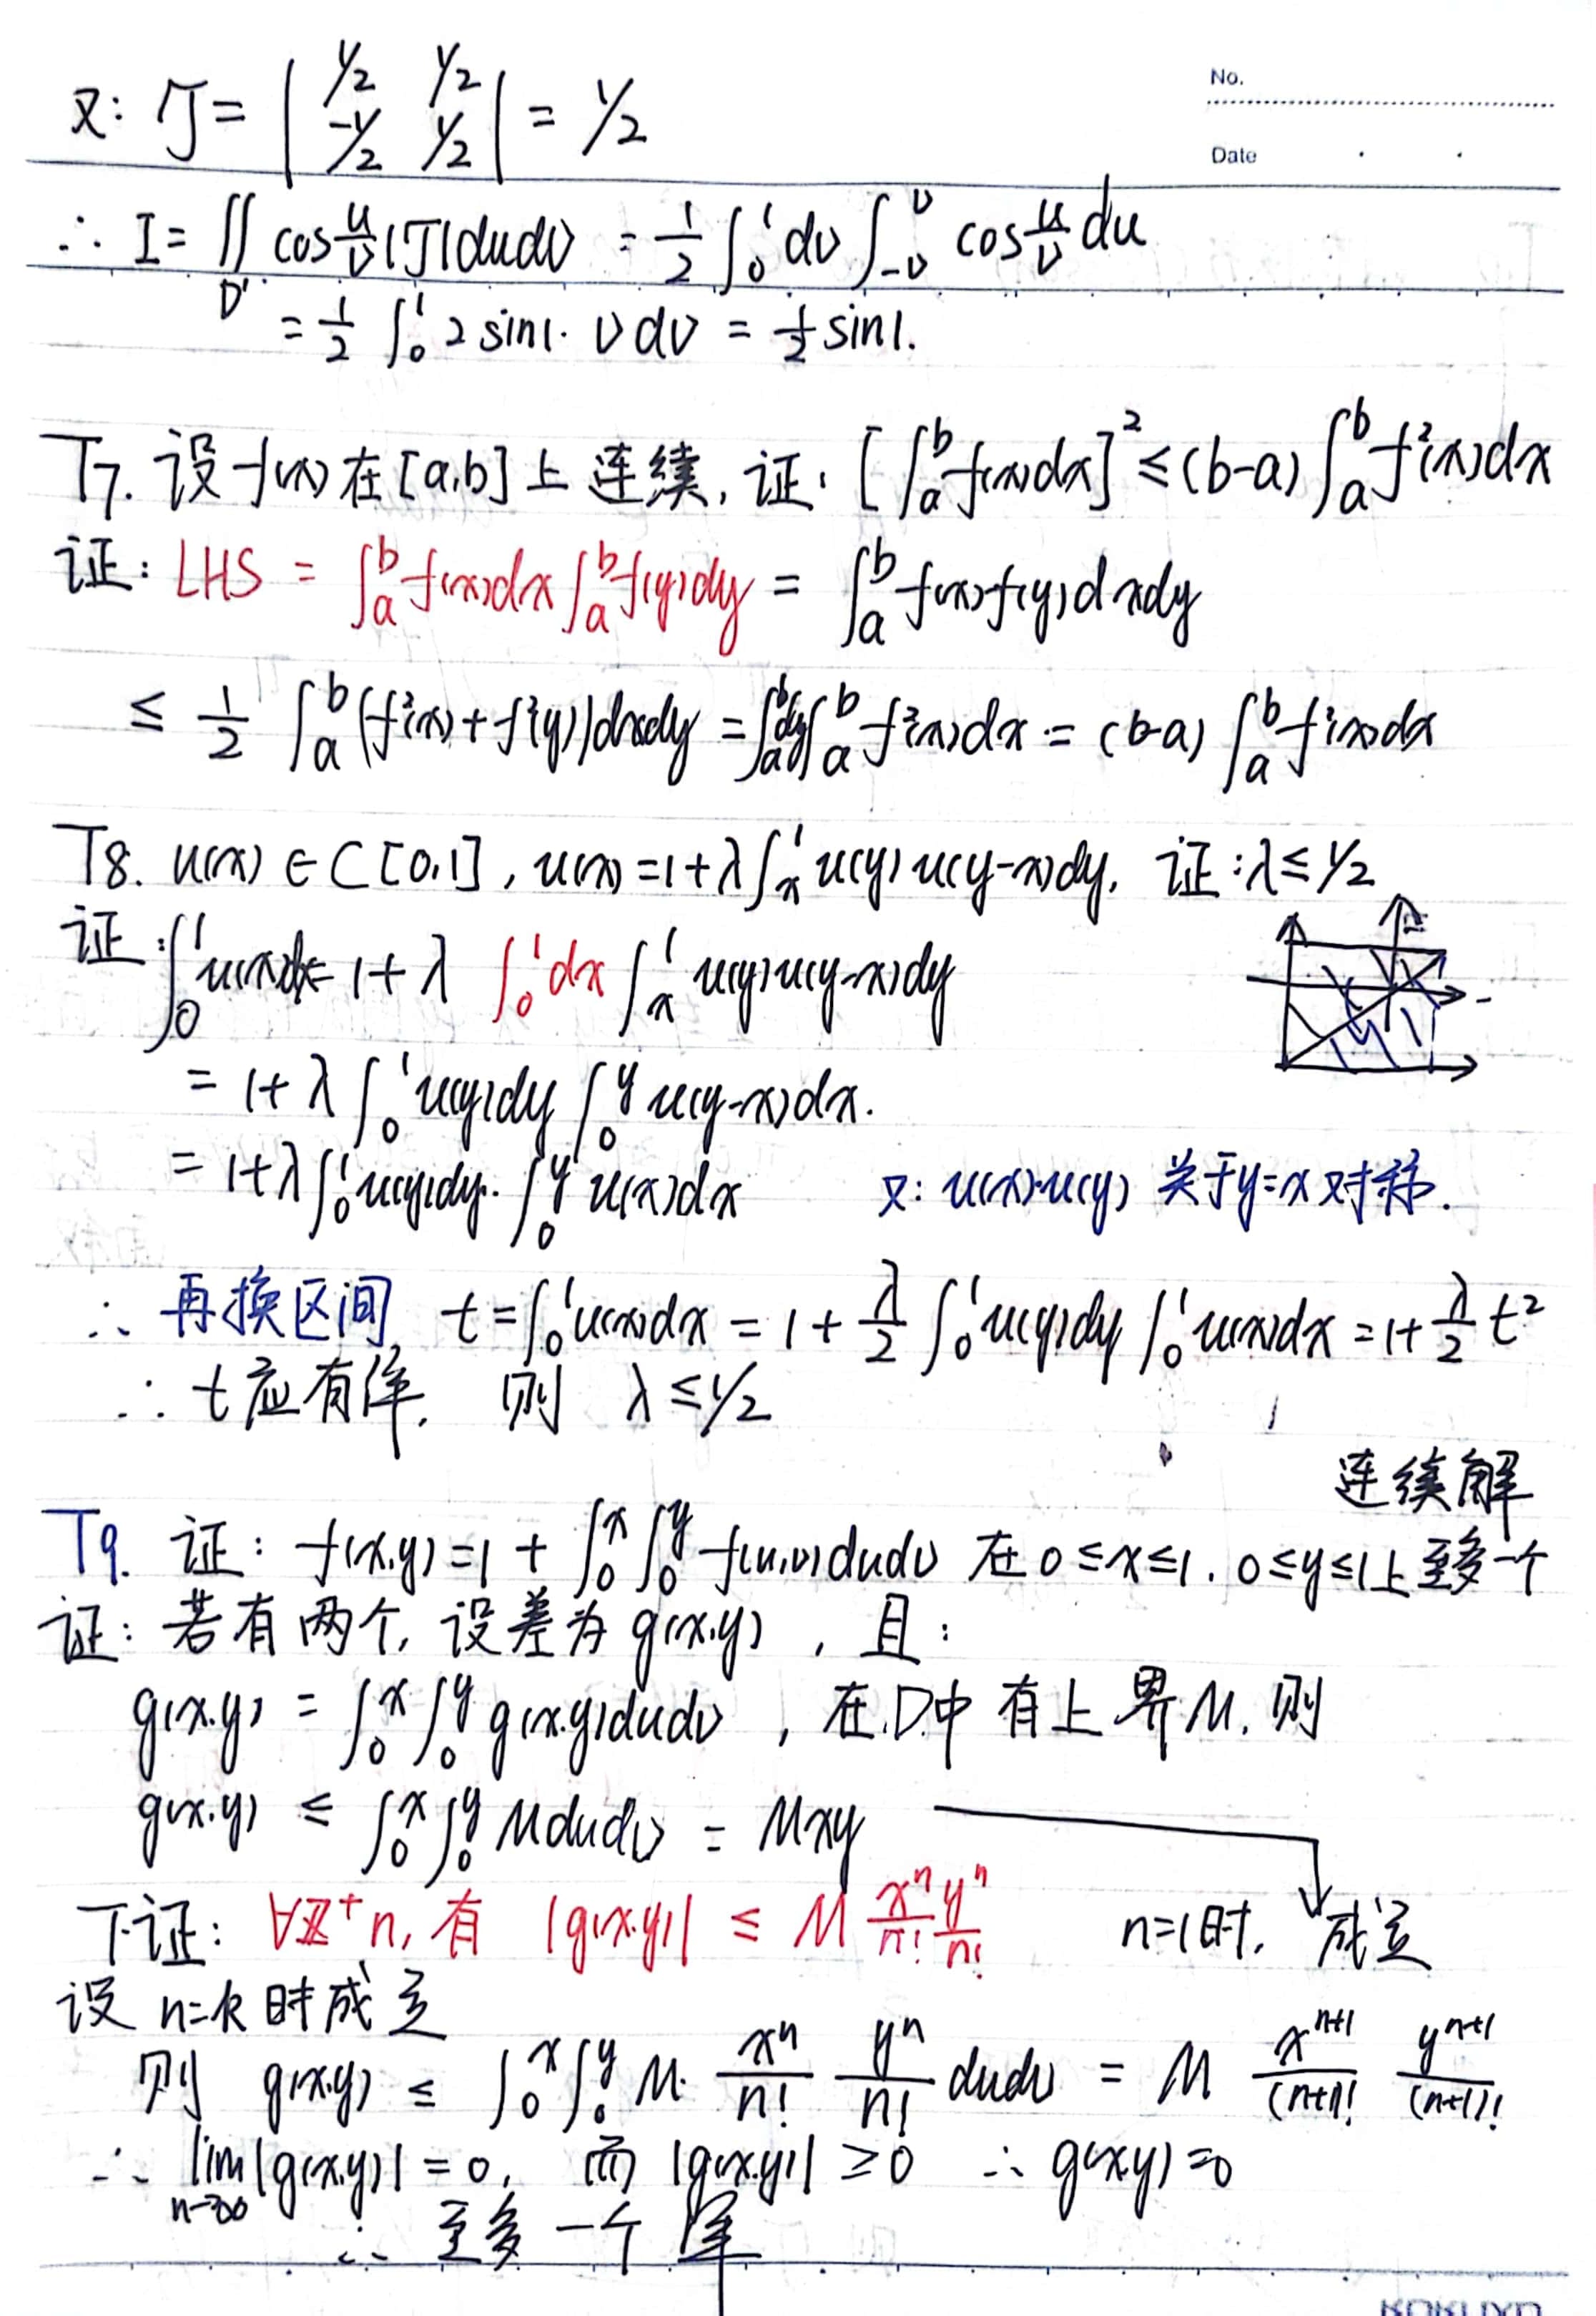 No.
Date
又: J = | 1/2 1/2 ; -1/2 1/2 | = 1/2
∴ I = ∬_{D'} cos u/v |J| du dv = 1/2 ∫_0^1 dv ∫_{-v}^{v} cos u/v du
= 1/2 ∫_0^1 2 sin1 · v dv = 1/2 sin1.
T7. 设 f(x) 在 [a,b] 上 连续, 证: [∫_a^b f(x)dx]^2 ≤ (b-a) ∫_a^b f²(x)dx
证: LHS = ∫_a^b f(x)dx ∫_a^b f(y)dy = ∫_a^b f(x)f(y)dxdy
≤ 1/2 ∫_a^b (f²(x)+f²(y))dxdy = ∫_a^b dy ∫_a^b f²(x)dx = (b-a) ∫_a^b f²(x)dx
T8. u(x) ∈ C[0,1], u(x) = 1+λ∫_x^1 u(y)u(y-x)dy, 证: λ ≤ 1/2
证: ∫_0^1 u(x)dx = 1+λ ∫_0^1 dx ∫_x^1 u(y)u(y-x)dy
= 1+λ ∫_0^1 u(y)dy ∫_0^y u(y-x)dx.
= 1+λ∫_0^1 u(y)dy · ∫_0^y u(x)dx 又: u(x)·u(y) 关于y=x对称.
∴ 再换区间, t = ∫_0^1 u(x)dx = 1 + λ/2 ∫_0^1 u(y)dy ∫_0^1 u(x)dx = 1+ λ/2 t²
∴ t应有解, 则 λ ≤ 1/2
连续解
T9. 证: f(x,y) = 1 + ∫_0^x ∫_0^y f(u,v)dudv 在 0≤x≤1, 0≤y≤1上至多一个
证: 若有两个, 设差为 g(x,y), 且:
g(x,y) = ∫_0^x ∫_0^y g(x,y)dudv, 在D中有上界M, 则
g(x,y) ≤ ∫_0^x ∫_0^y M dudv = Mxy
下证: ∀Z⁺ n, 有 |g(x,y)| ≤ M x^n/n! y^n/n! n=1时, 成立
设 n=k 时成立
则 g(x,y) ≤ ∫_0^x ∫_0^y M · x^n/n! y^n/n! dudv = M x^{n+1}/(n+1)! y^{n+1}/(n+1)!
∴ lim_{n→∞} |g(x,y)| = 0, 而 |g(x,y)| ≥ 0 ∴ g(x,y)=0
∴ 至多一个解
KOKUYO